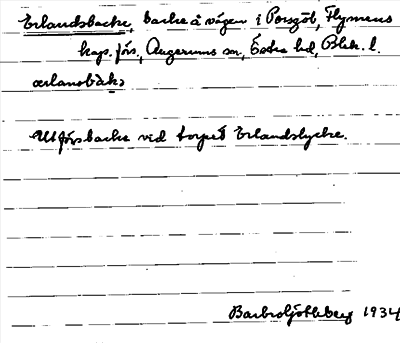 Erlandsbacke, backe å vägen i Porsgöl, Flymens
kap. förs., Augerums sn, Östra hd, Blek. l.
Utförsbacke vid torpet Erlandslycke.
1934